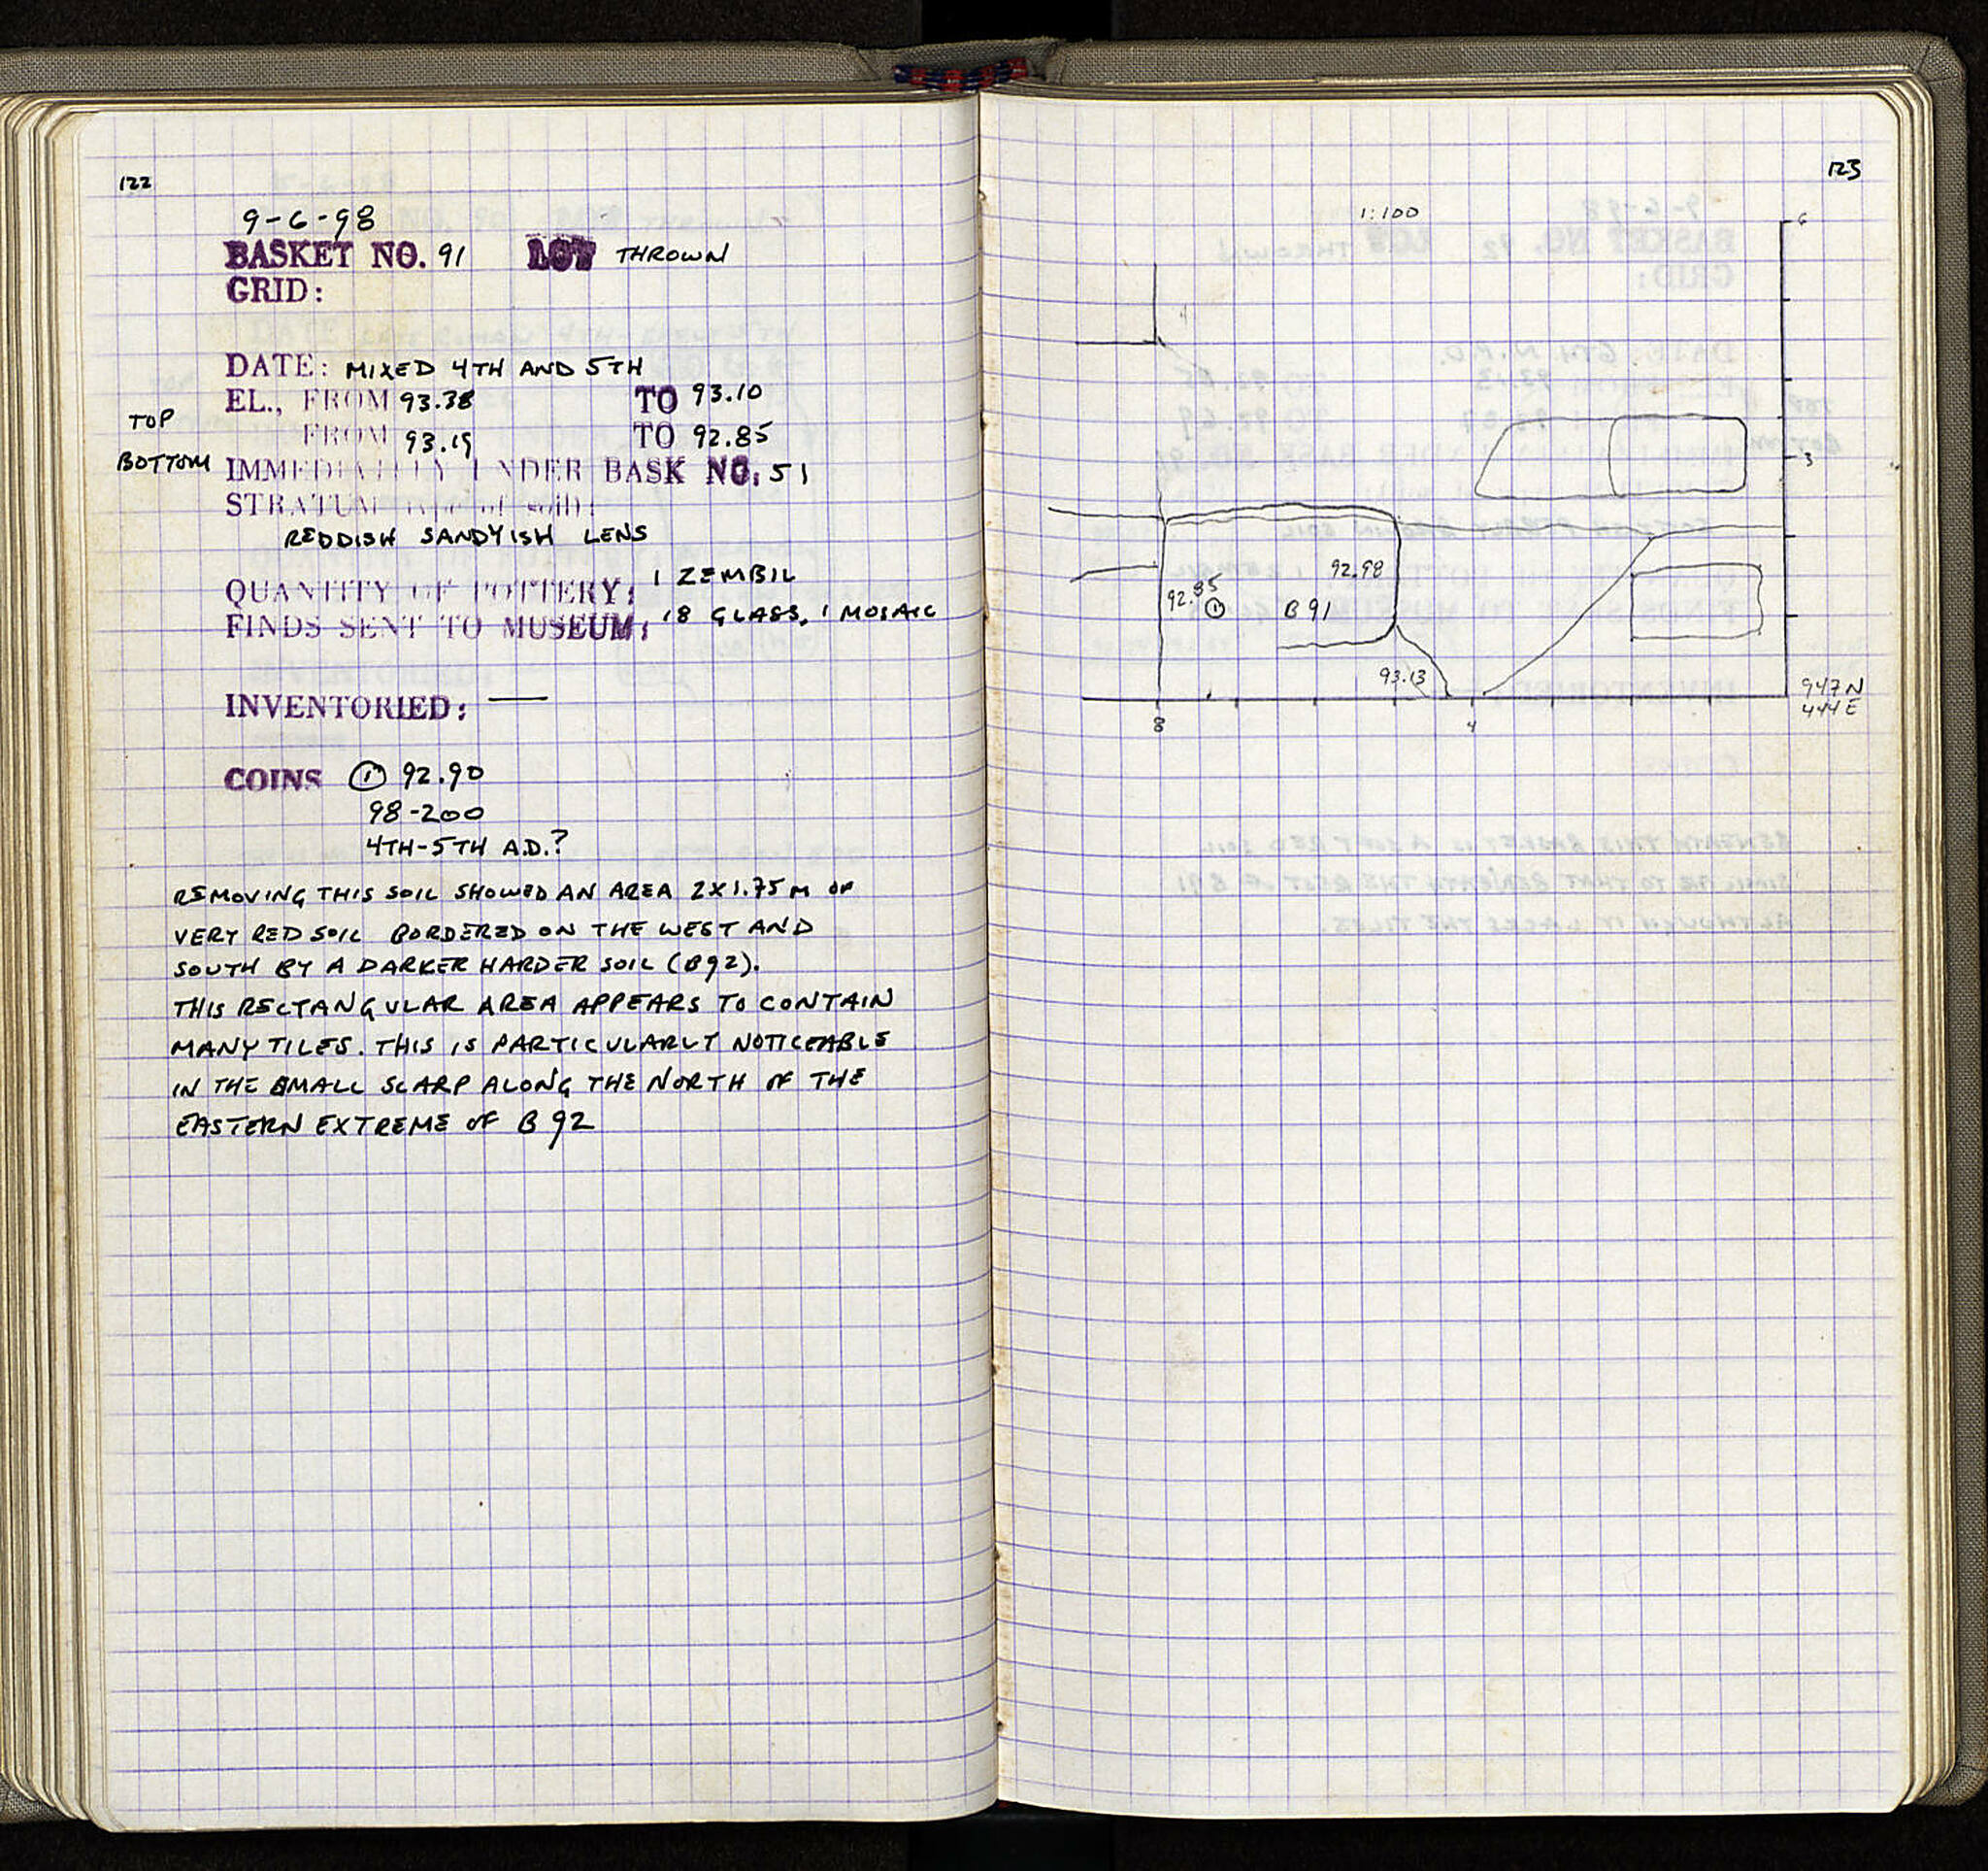 122
9-6-98
BASKET NO. 91 LOT THROWN
GRID:
DATE: MIXED 4TH AND 5TH
TOP EL., FROM 93.38 TO 93.10
BOTTOM FROM 93.19 TO 92.85
IMMEDIATELY UNDER BASK NO: 51
STRATUM (type of soil):
REDDISH SANDYISH LENS
QUANTITY OF POTTERY: 1 ZEMBIL
FINDS SENT TO MUSEUM: 18 GLASS, 1 MOSAIC
INVENTORIED: —
COINS ① 92.90
98-200
4TH-5TH A.D.?
REMOVING THIS SOIL SHOWED AN AREA 2X1.75 M OF
VERY RED SOIL BORDERED ON THE WEST AND
SOUTH BY A DARKER HARDER SOIL (B92).
THIS RECTANGULAR AREA APPEARS TO CONTAIN
MANY TILES. THIS IS PARTICULARLY NOTICEABLE
IN THE SMALL SCARP ALONG THE NORTH OF THE
EASTERN EXTREME OF B 92
123
1:100
6
3
92.98
92.85
①
B 91
93.13
947 N
444 E
8
4